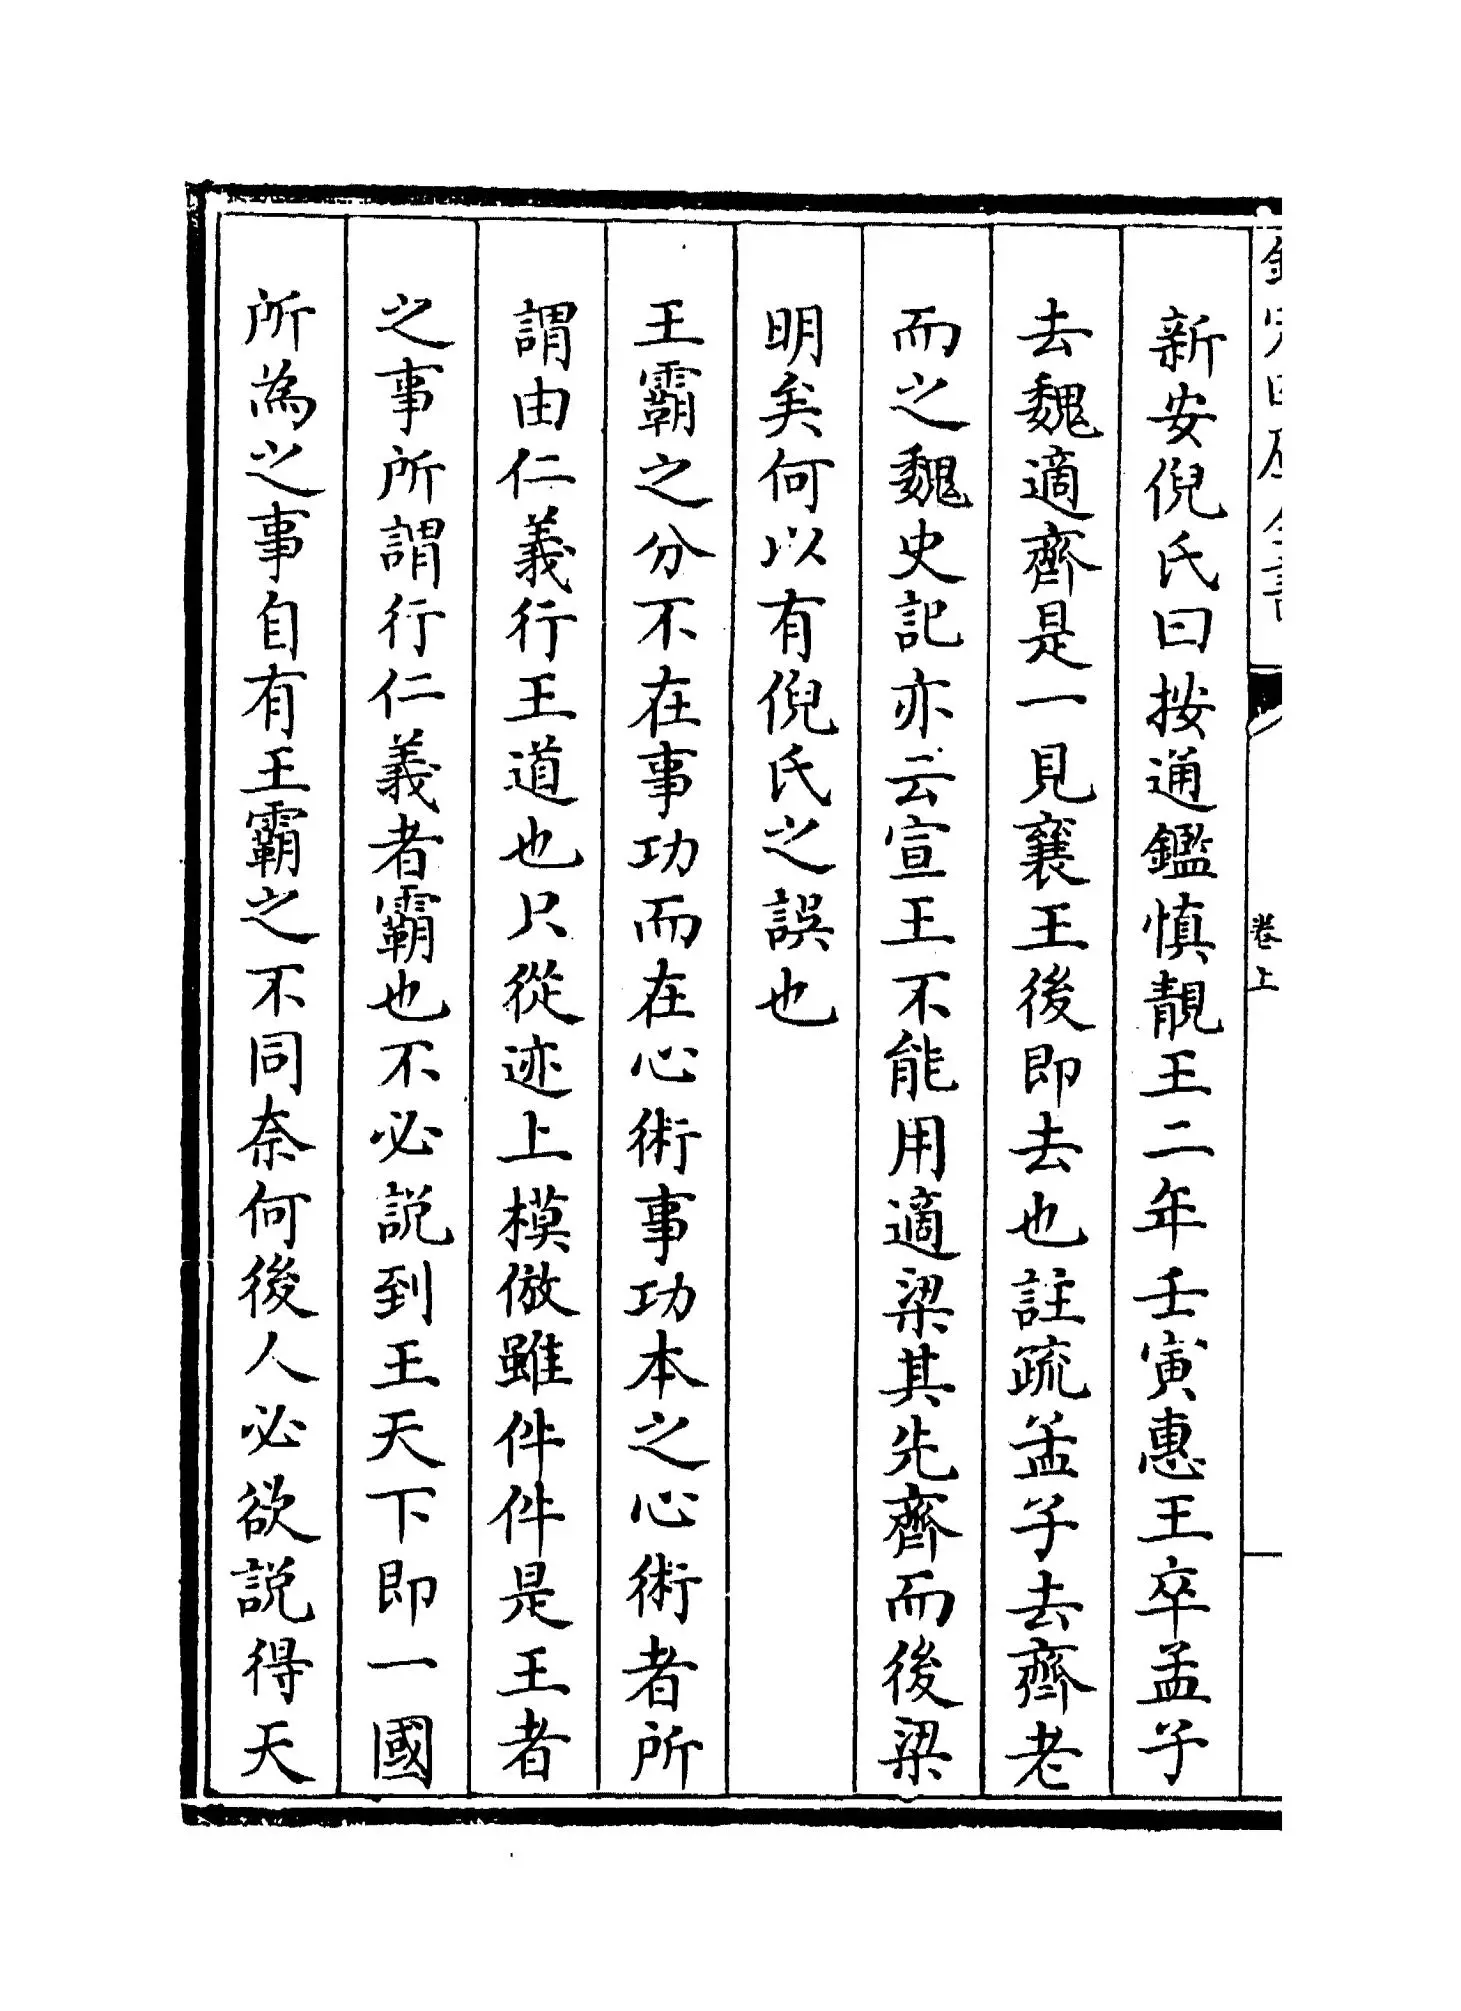 新安倪氏曰按通鑑慎靚王二年壬寅惠王卒孟子
去魏適齊是一見襄王後即去也註疏孟子去齊老
而之魏史記亦云宣王不能用適梁其先齊而後梁
明矣何以有倪氏之誤也
王霸之分不在事功而在心術事功本之心術者所
謂由仁義行王道也只從迹上模倣雖件件是王者
之事所謂行仁義者霸也不必説到王天下即一國
所為之事自有王霸之不同奈何後人必欲説得天
卷上